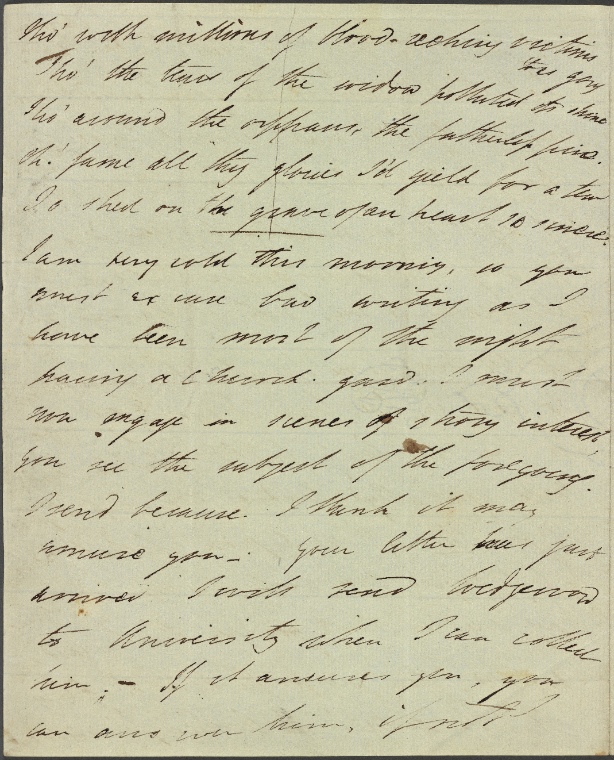 Tho' with millions of blood-reeking victims
'twas gory
Tho' the tears of the widow polluted its shrine
Tho' around the orphans, the fatherless pine.
Oh! fame all thy glories I'd yield for a tear
To shed on the grave of an heart so sincere.
I am very cold this morning, so you
must excuse bad writing as I
have been most of the night
pacing a Church yard. I must
now engage in scenes of strong interest,
You see the subject of the foregoing.
I send because I think it may
amuse you — your letter has just
arrived I will send Wedgewood
to University when I can collect
him. — If it amuses you, you
can answer him, if not I